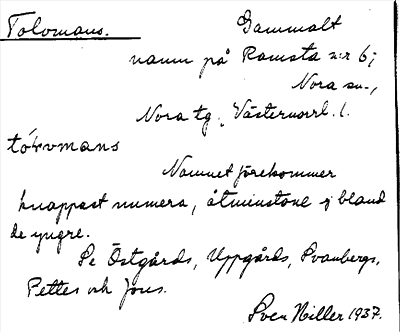 Tolvmans. Gammalt
namn på Ramsta nr 6;
Nora sn.,
Nora tg. Västernorrl. l.
tólvmans
Namnet förekommer
knappast numera, åtminstone ej bland
de yngre.
Se Östgårds, Uppgårds, Svanbergs,
Pettes och Jons.
Sven Hiller 1937.